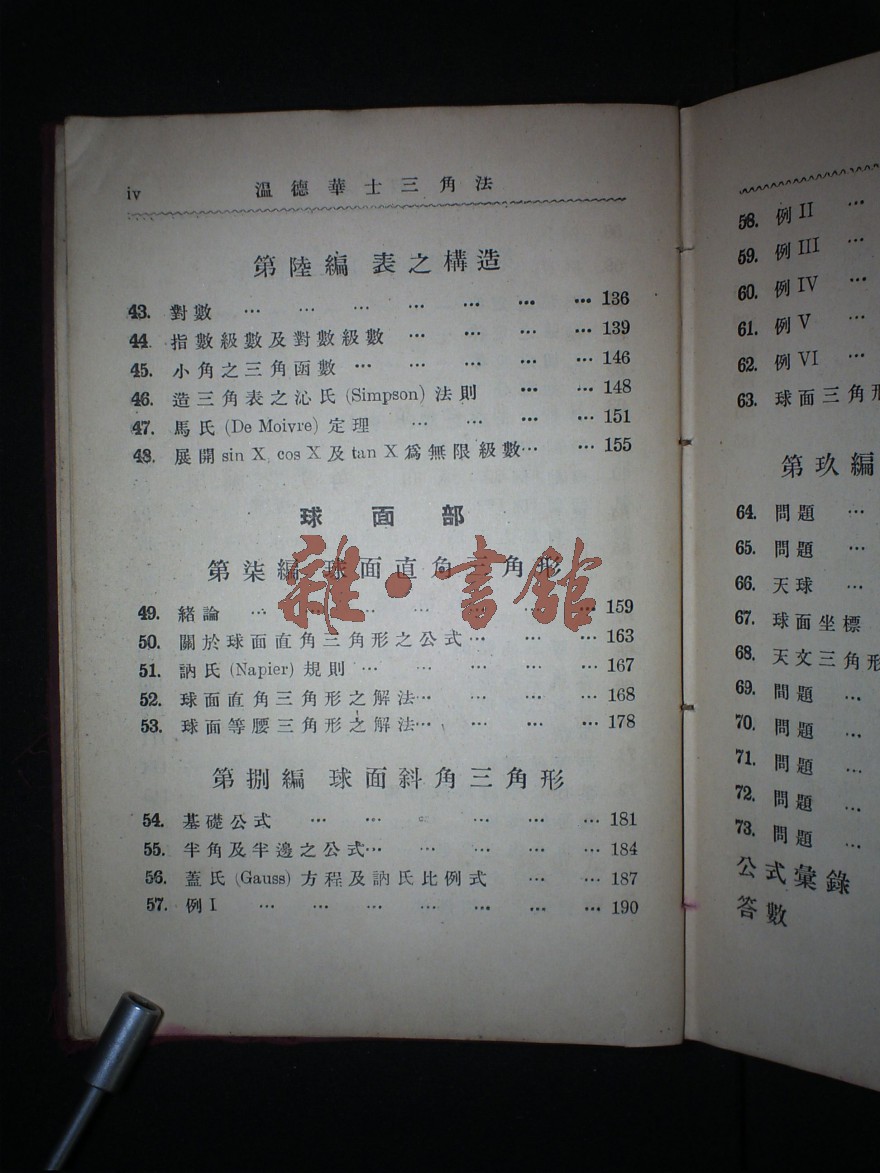 iv 溫德華士三角法
第陸編 表之構造
43. 對數 … … … … … … … 136
44. 指數級數及對數級數 … … … … 139
45. 小角之三角函數 … … … … … 146
46. 造三角表之沁氏 (Simpson) 法則 … … 148
47. 馬氏 (De Moivre) 定理 … … … … 151
48. 展開 sin X, cos X 及 tan X 爲無限級數 … … 155
球面部
第柒編 球面直角三角形
49. 緒論 … … … … … … … 159
50. 關於球面直角三角形之公式 … … … 163
51. 訥氏 (Napier) 規則 … … … … … 167
52. 球面直角三角形之解法 … … … … 168
53. 球面等腰三角形之解法 … … … … 178
第捌編 球面斜角三角形
54. 基礎公式 … … … … … … 181
55. 半角及半邊之公式 … … … … … 184
56. 蓋氏 (Gauss) 方程及訥氏比例式 … … 187
57. 例 I … … … … … … … 190
雜·書館
58. 例 II …
59. 例 III …
60. 例 IV …
61. 例 V …
62. 例 VI …
63. 球面三角形
第玖編
64. 問題 …
65. 問題 …
66. 天球 …
67. 球面坐標
68. 天文三角形
69. 問題 …
70. 問題 …
71. 問題 …
72. 問題 …
73. 問題 …
公式彙錄
答數